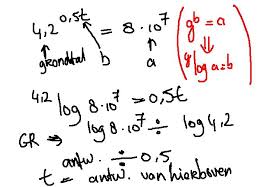 4,2^0,5t = 8·10^7
grondtal b a
(g^b = a
⇓
^g log a = b)
^4,2 log 8·10^7 = 0,5t
GR ⇒ log 8·10^7 ÷ log 4,2
antw. ÷ 0,5
t = antw. van hierboven